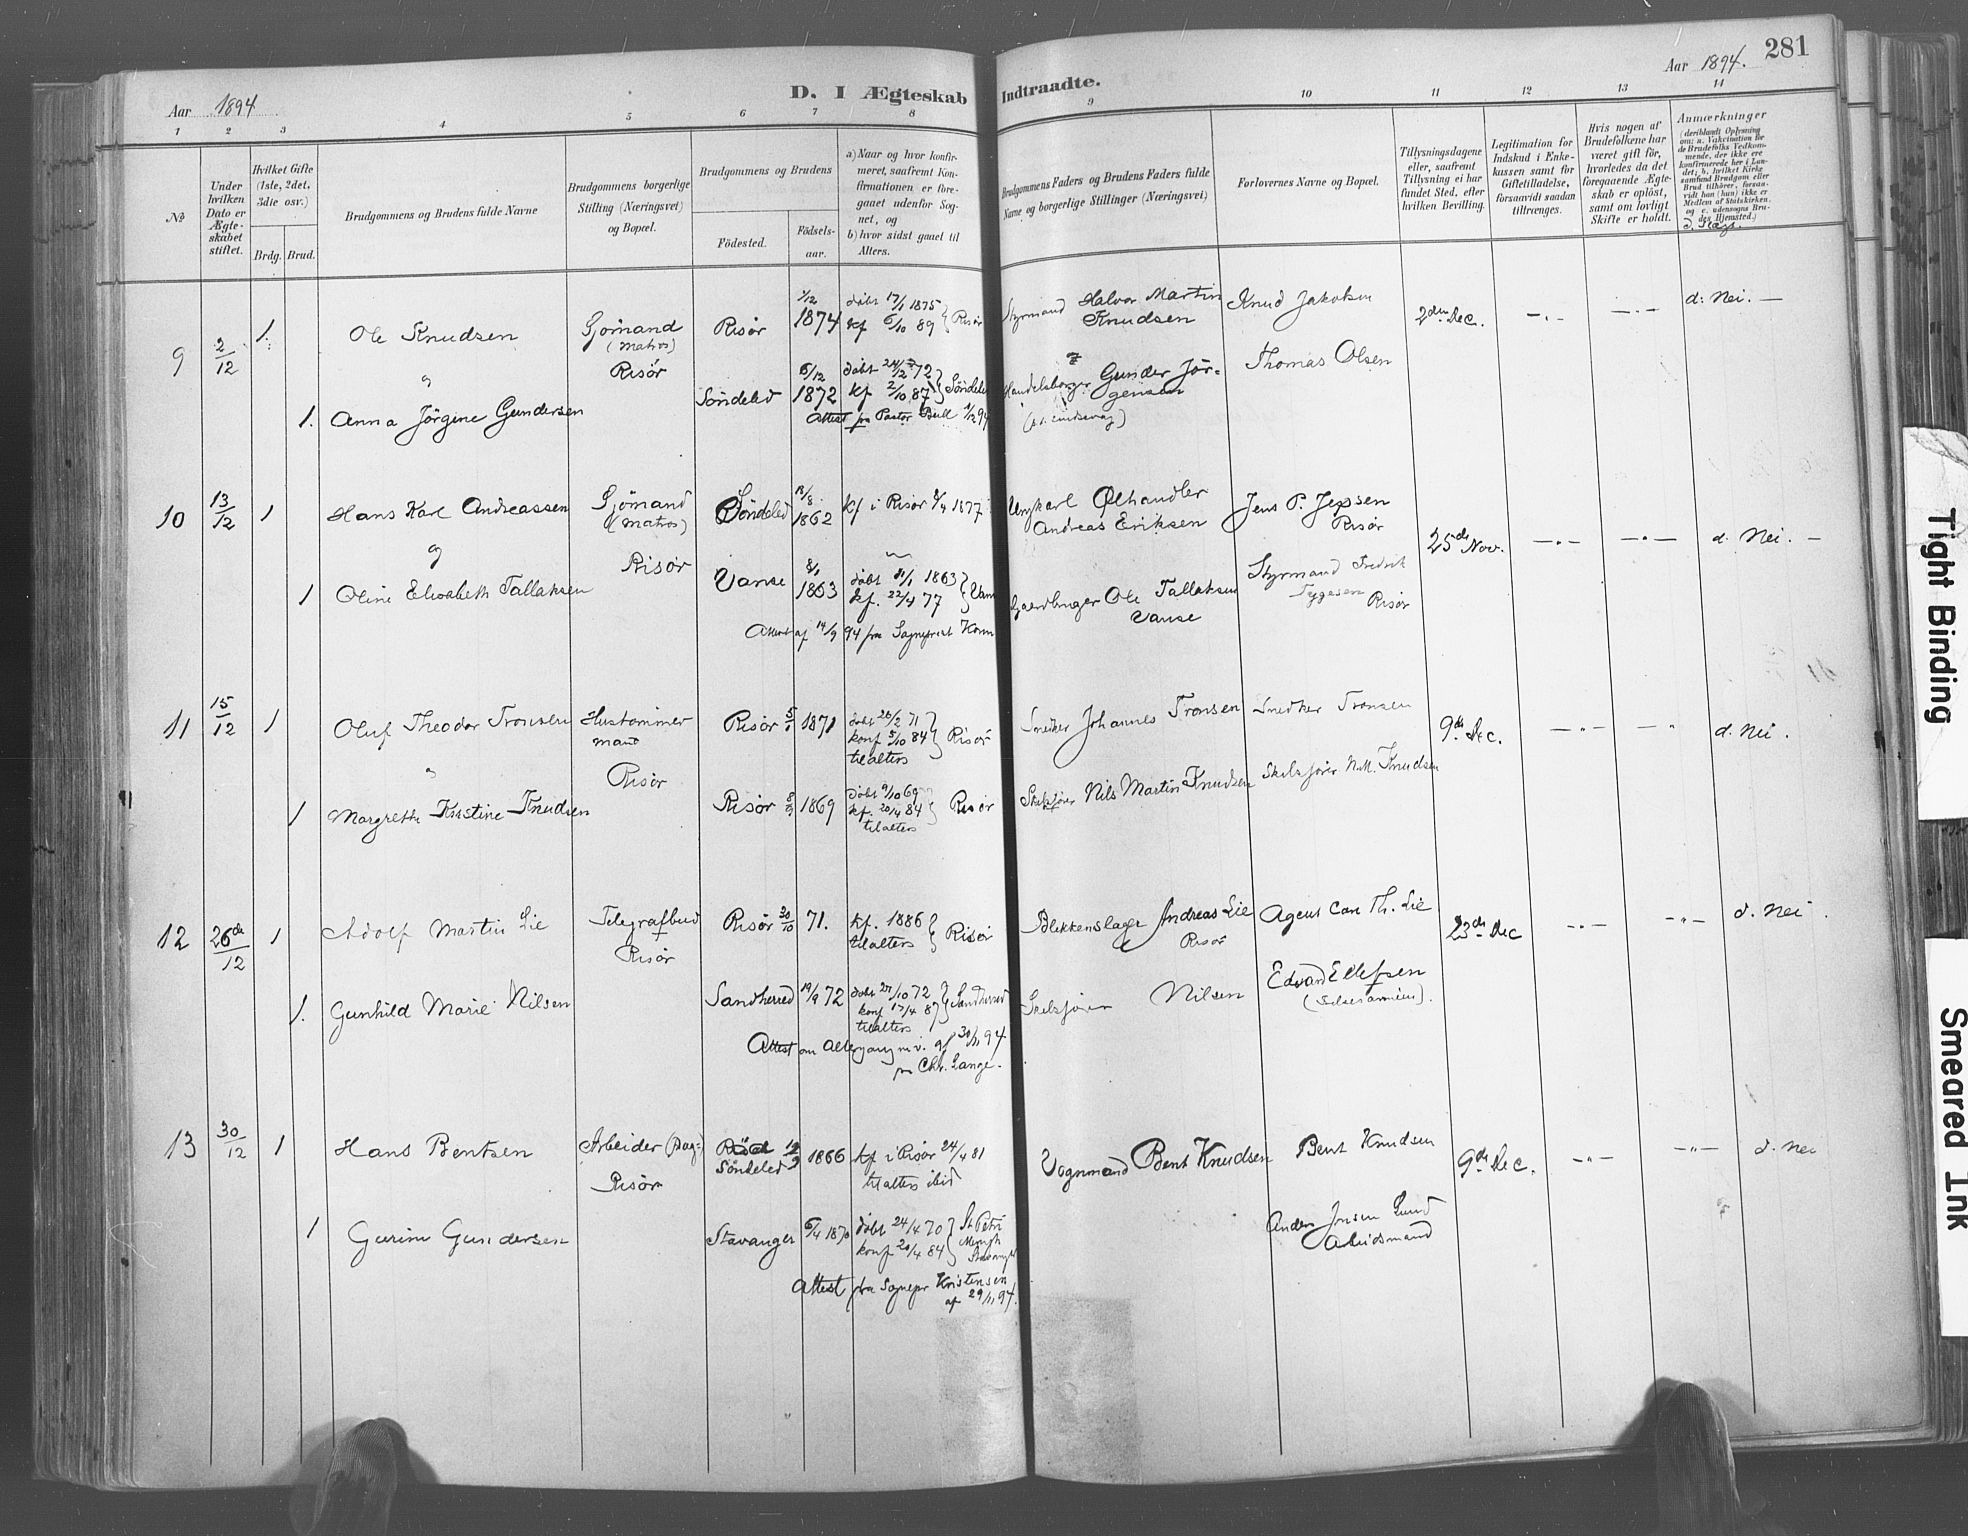 Aar 1894
D. I Ægteskab Indtraadte.
Aar 1894. 281
1 2 3 4 5 6 7 8 9 10 11 12 13 14
No
Under hvilken Dato er Ægteskabet stiftet.
Hvilket Gifte (1ste, 2det, 3die osv.)
Brdg. Brud.
Brudgommens og Brudens fulde Navne
Brudgommens borgerlige Stilling (Næringsvei) og Bopæl.
Brudgommens og Brudens
Födested.
Födsels-aar.
a) Naar og hvor konfirmeret, saafremt Konfirmationen er foregaaet udenfor Sognet, og
b) hvor sidst gaaet til Alters.
Brudgommens Faders og Brudens Faders fulde Navne og borgerlige Stillinger (Næringsvei)
Forlovernes Navne og Bopæl.
Tillysningsdagene eller, saafremt Tillysning ei har fundet Sted, efter hvilken Bevilling.
Legitimation for Indskud i Enkekassen samt for Giftetilladelse, forsaavidt saadan tiltrænges.
Hvis nogen af Brudefolkene har været gift för, hvorledes da det foregaaende Ægteskab er oplöst, samt om lovligt Skifte er holdt.
Anmærkninger
9 2/12 1. Ole Knudsen
Sjömand (Matros) Risör
Risör 1/12 1874
döbt 17/1 1875 kf 6/10 89 } Risör
Styrmand Halvor Martin Knudsen
Knud Jakobsen
2den Dec. —.— —.— d: Nei. —
og
1. Anna Jörgine Gundersen
Söndeled 6/12 1872
kf 2/10 87 } Söndeled
Attest fra Pastor Bull
Handelsborger Gunder Jörgensen
Thomas Olsen
10 13/12 1 Hans Karl Andreassen
Sjömand (Matros) Risör
Söndeled 1862
kf i Risör 1877
Ølhandler Andreas Eriksen
Jens P. Jepsen Risör
25de Nov. —.— —.— d. Nei. —
og
1 Oline Elisabeth Tallaksen
Vanse 8/1 1863
döbt 1863 kf. 22/4 77
Attest af 14/9 94 fra Sogneprest
Gaardbruger Ole Tallaksen Vanse
Styrmand Fredrik Tygesen Risör
11 15/12 1 Oluf Theodor Tronsen
Hustömmermand Risör
Risör 1871
döbt 26/2 71 konf 5/10 84 tilalters } Risör
Snedker Johannes Tronsen
Snedker Tronsen
9de Dec. —"— —"— d. Nei.
1 Margrethe Kristine Knudsen
Risör 1869
döbt 9/10 69 kf. 20/4 84 tilalters } Risör
Skibsförer Nils Martin Knudsen
Skibsförer N. M. Knudsen
12 26de/12 1 Adolf Martin Lie
Telegrafbud Risör
Risör 30/10 71.
kf. 1886 tilalters } Risör
Blikkenslager Andreas Lie Risör
Agent Carl Th. Lie
23de Dec —.— —"— d. Nei.
1. Gunhild Marie Nilsen
Sandherred 19/9 72
döbt 27/10 72 konf 17/4 87 tilalters } Sandherred
Attest om Altergang m.v. af 30/11 94 fra Chr. Lange.
Skibsförer Nilsen
Edvard Ellefsen
13 30/12 1 Hans Bentsen
Arbeider (Dag-) Risör
Söndeled 1866
kf i Risör 24/4 81 tilalters ibid
Vognmand Bent Knudsen
Bent Knudsen
9de Dec. —"— —"— d. Nei
1 Gurine Gundersen
Stavanger 6/4 1870
döbt 24/4 70 konf 20/4 84 } St Petri
Attest fra Sognepr Kristensen af 29/11 94.
Anders Jonsen Lund
Arbeidsmand
Tight Binding
Smeared Ink